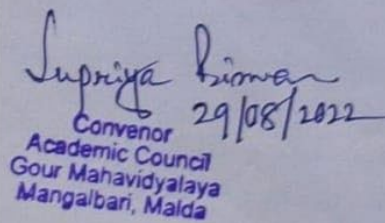 Supriya Biswas
29/08/2022
Convenor
Academic Council
Gour Mahavidyalaya
Mangalbari, Malda